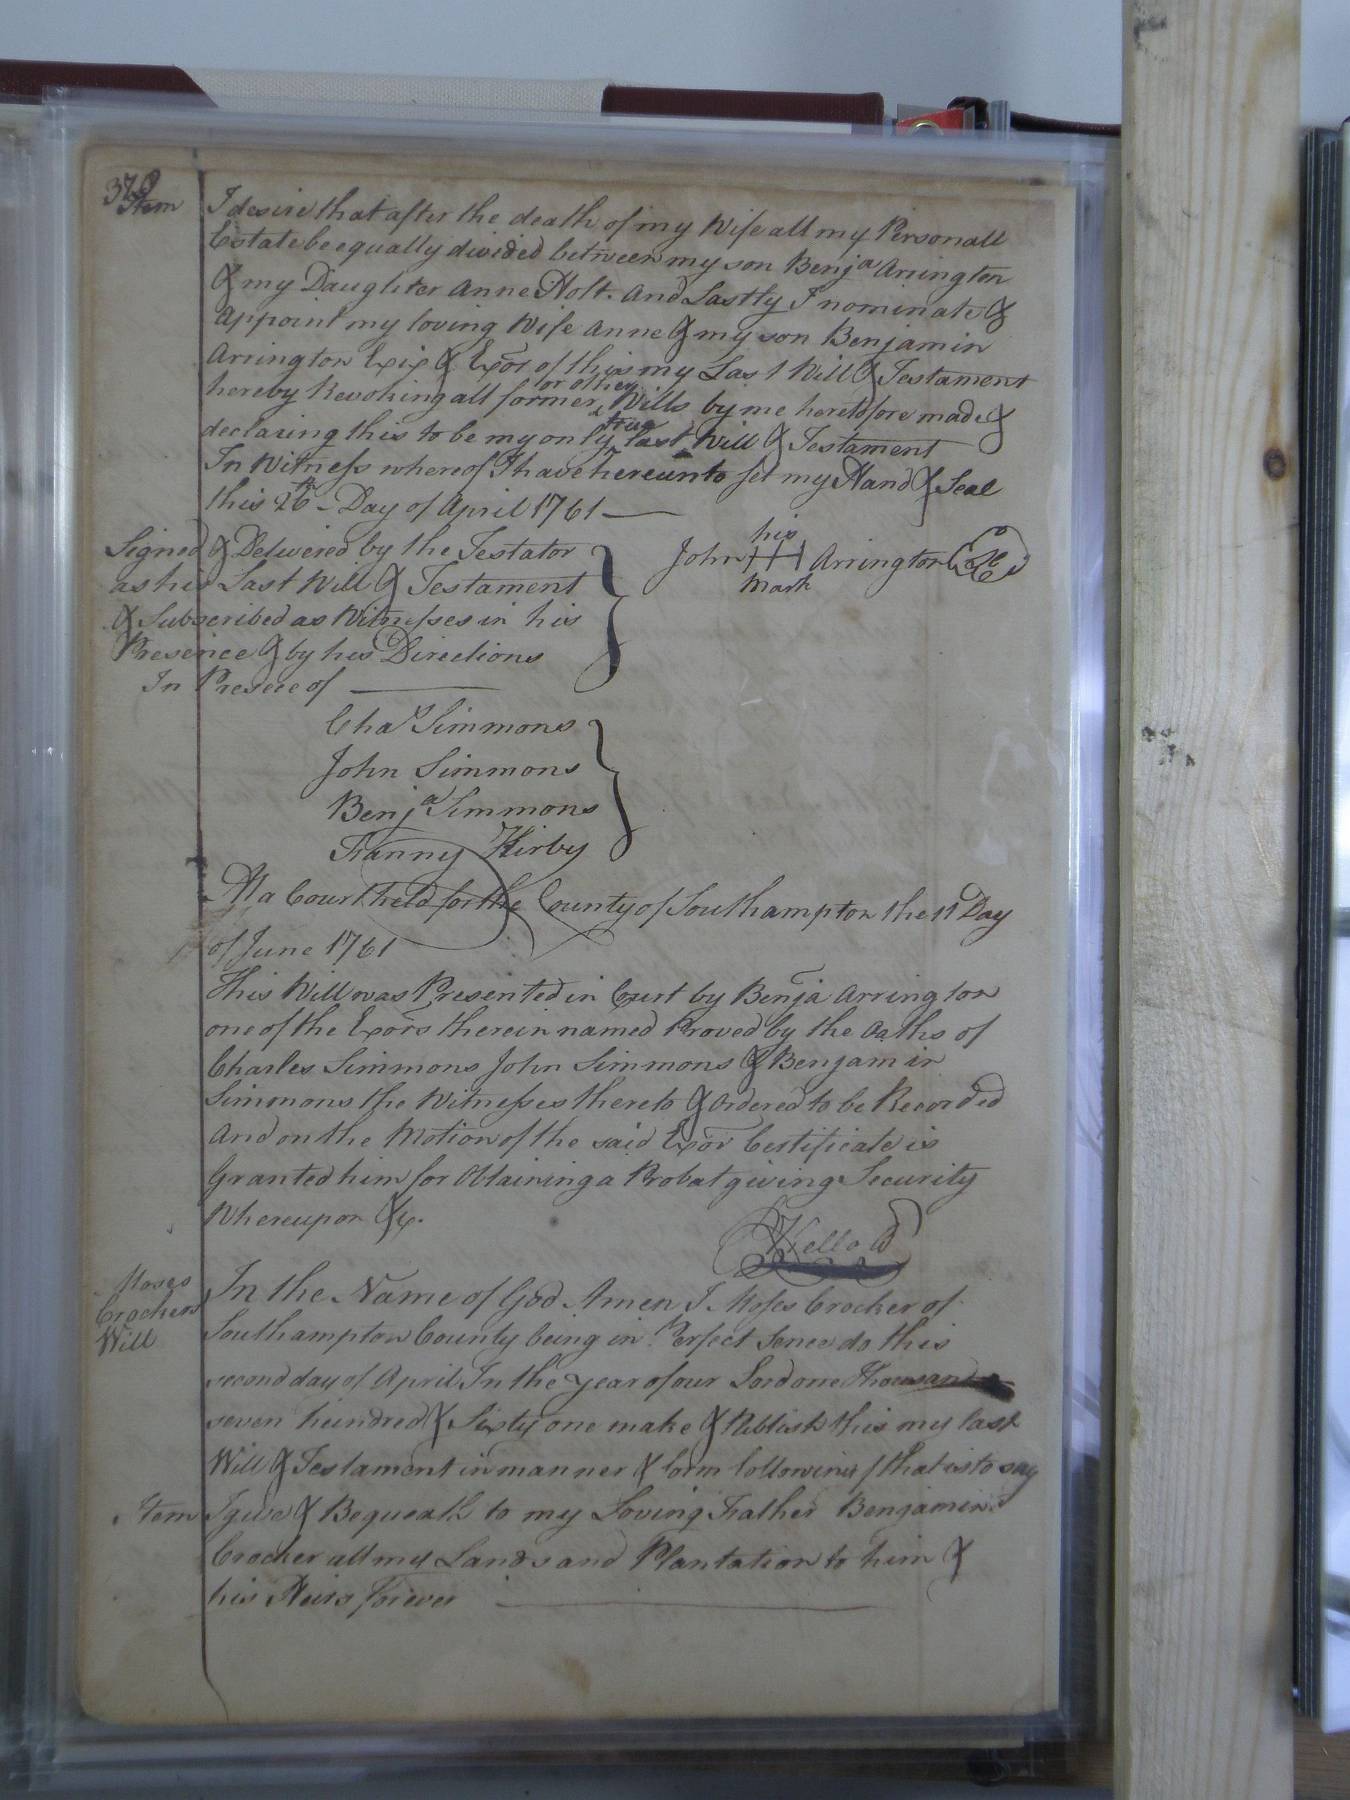 370
Item I desire that after the death of my Wife all my Personall
Estate be equally divided between my son Benja Arrington
& my Daughter Anne Holt. And Lastly I nominate &
Appoint my loving Wife Anne & my son Benjamin
Arrington Exix & Exor of this my Last Will & Testament
hereby Revoking all former or other Wills by me heretofore made &
declaring this to be my only true last Will & Testament
In Witness whereof I have hereunto set my Hand & Seal
this 26th Day of April 1761
Signed & Delivered by the Testator
as his Last Will & Testament
& Subscribed as Witnesses in his
Presence & by his Directions
In Presece of
his
John H Arrington
Mark
Chas Simmons
John Simmons
Benja Simmons
Franny Kirby
At a Court held for the County of Southampton the 11 Day
of June 1761
This Will was Presented in Court by Benja Arrington
one of the Exors therein named Proved by the Oaths of
Charles Simmons John Simmons & Benjamin
Simmons the Witnesses thereto & Ordered to be Recorded
And on the Motion of the said Exor Certificate is
Granted him for Obtaining a Probat giving Security
Whereupon &c.
Kello
Moses
Crockers
Will
In the Name of God Amen I Moses Crocker of
Southampton County being in Perfect Sence do this
second day of April In the year of our Lord one Thousand
seven hundred & Sixty one make & Publish this my last
Will & Testament in manner & form following that is to say
Item I give & Bequeath to my Loving Father Benjamin
Crocker all my Lands and Plantation to him &
his Heirs forever